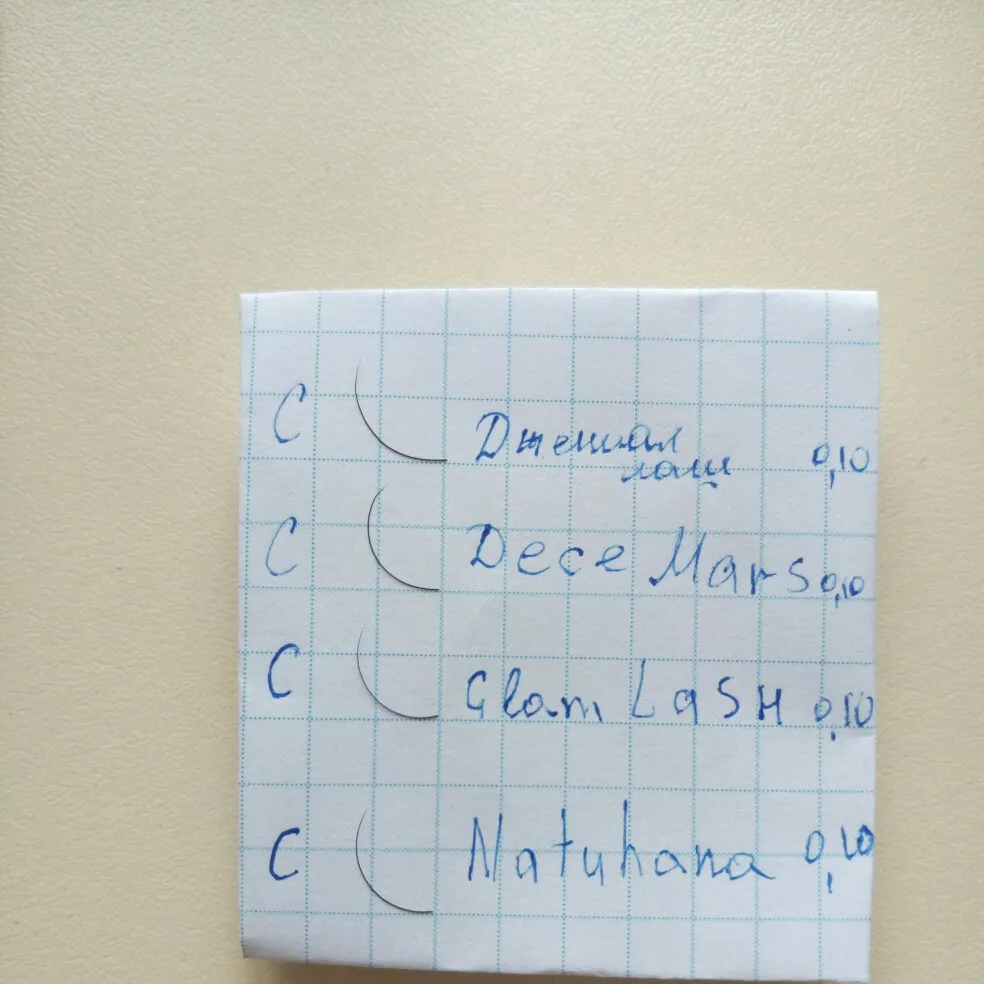 C Джениал
лаш 0,10
C Dece Mars 0,10
C Glam LaSH 0,10
C Natuhana 0,10